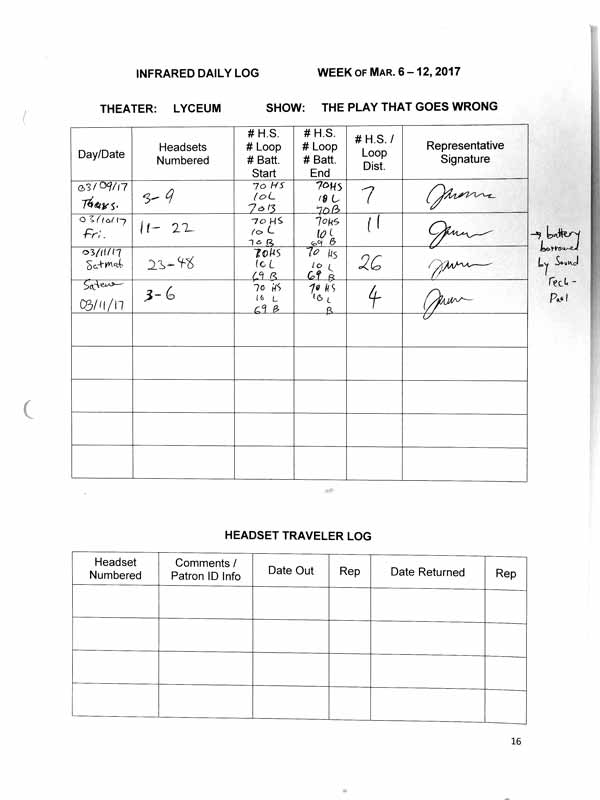 INFRARED DAILY LOG WEEK OF MAR. 6 – 12, 2017
THEATER: LYCEUM SHOW: THE PLAY THAT GOES WRONG
Day/Date
Headsets
Numbered
# H.S.
# Loop
# Batt.
Start
# H.S.
# Loop
# Batt.
End
# H.S. /
Loop
Dist.
Representative
Signature
03/09/17
Thurs.
3-9
70 HS
10 L
70 B
70HS
10 L
70B
7
03/10/17
Fri.
11- 22
70 HS
10 L
70 B
70HS
10 L
69 B
11
→ battery
borrowed
by Sound
Tech -
Paul
03/11/17
Satmat
23-48
70HS
10 L
69 B
70 HS
10 L
69 B
26
Sateve
03/11/17
3-6
70 HS
10 L
69 B
70 HS
10 L
B
4
HEADSET TRAVELER LOG
Headset
Numbered
Comments /
Patron ID Info
Date Out
Rep
Date Returned
Rep
16